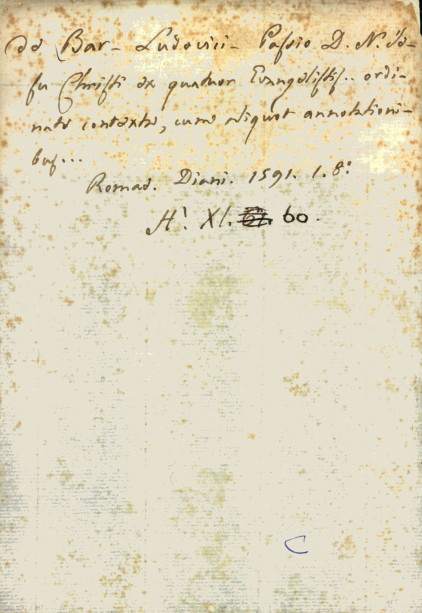 de Bar- Ludovici- Passio D. N. Je-
su Christi ex quatuor Evangelistis.. ordi-
nate contexta, cum aliquot annotationi-
bus...
Romae. Diani. 1591. 1. 8º
Hˡ. XI. 60.
C